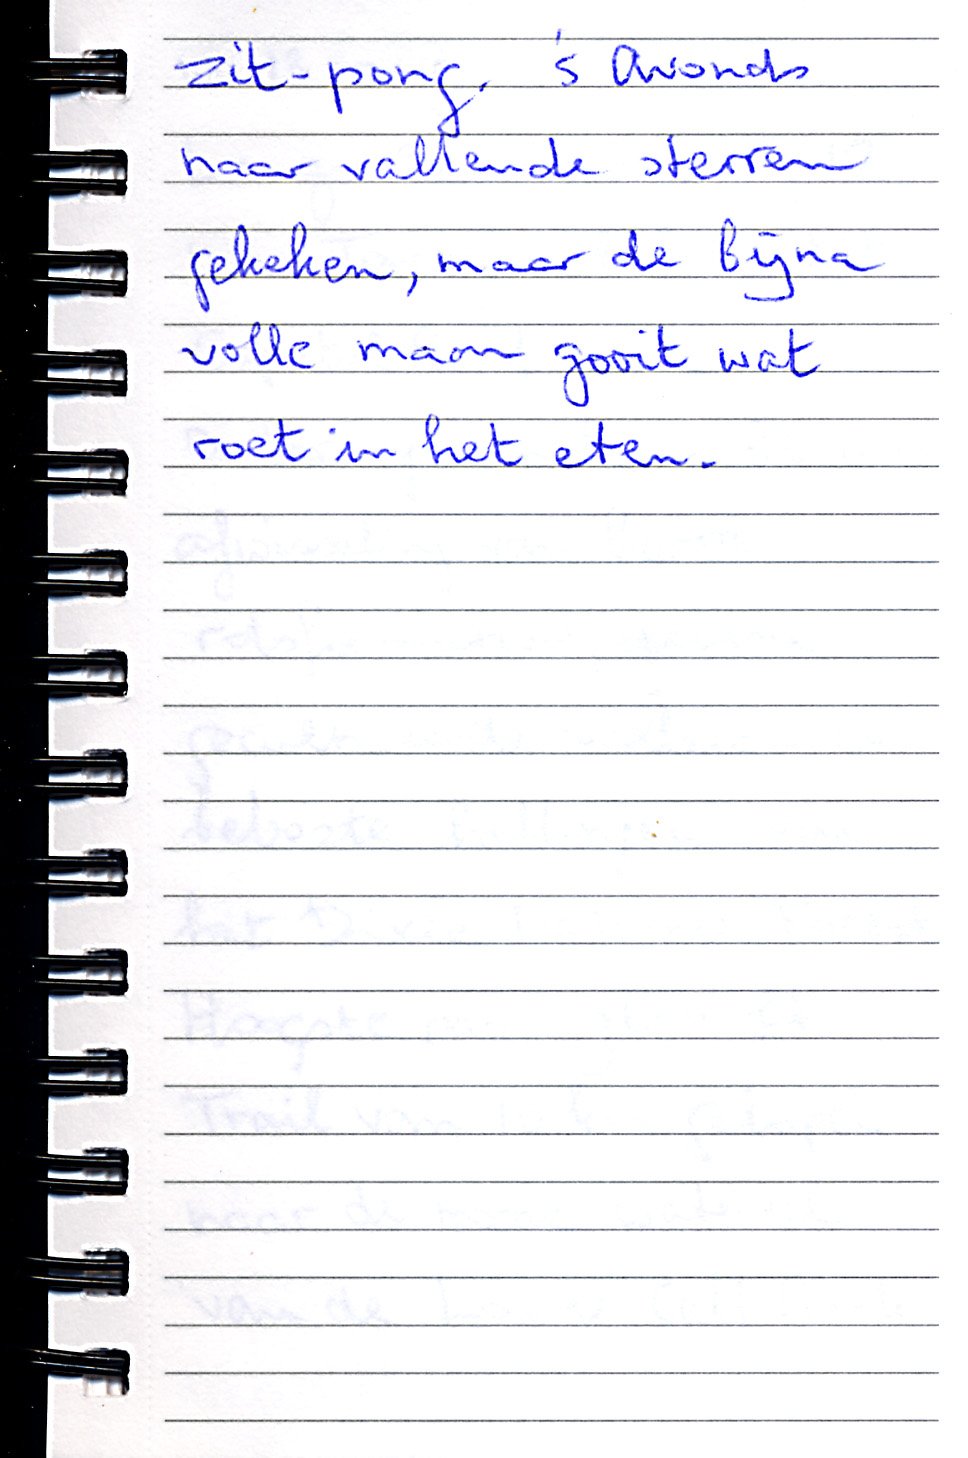 zit-pong. 's Avonds
naar vallende sterren
gekeken, maar de bijna
volle maan gooit wat
roet in het eten.